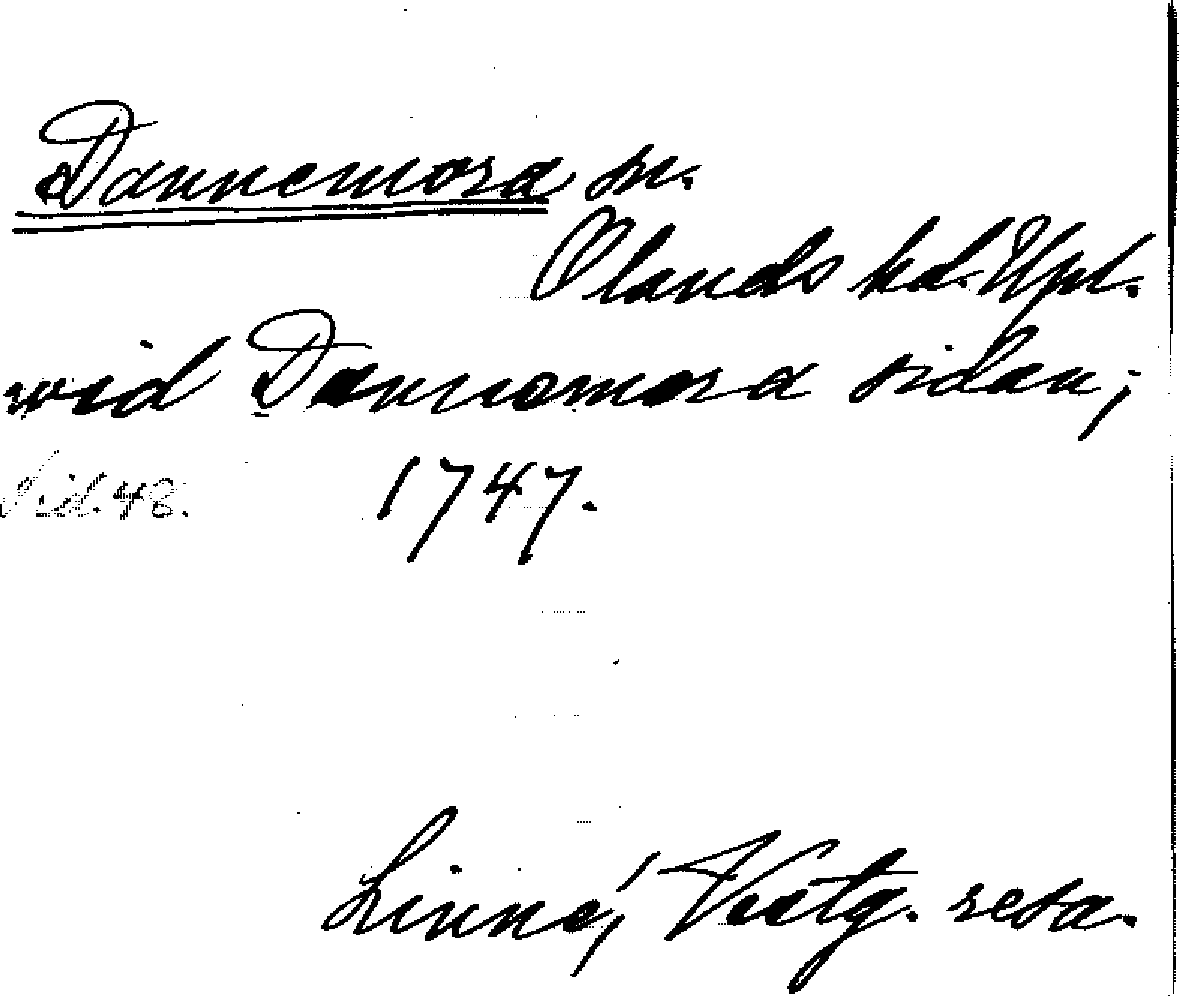 Dannemora sn.
Olands hd. Upl.
wid Dannemora sidan;
Sid. 48. 1747.
Linné, Västg. resa.